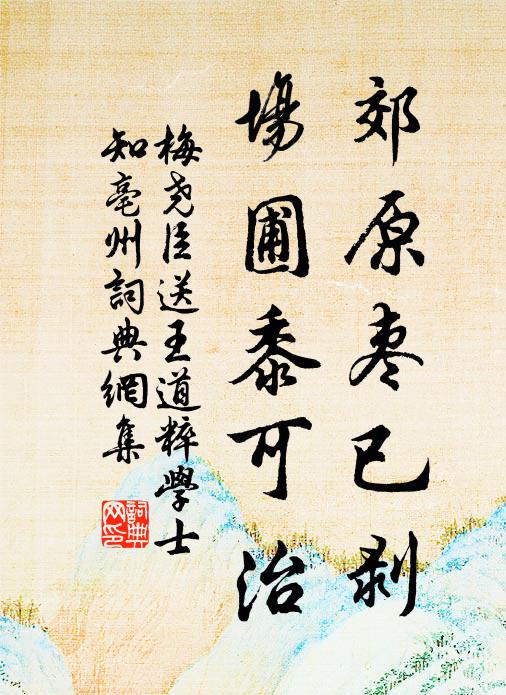 郊原枣已剥
場圃黍可治
梅尧臣送王道粹學士
知亳州詞典網集
詞典网印